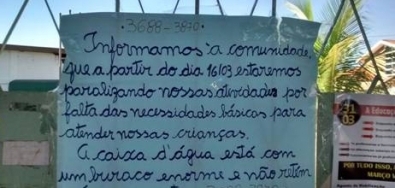 3688-3870
Informamos a comunidade,
que a partir do dia 16/03 estaremos
paralizando nossas atividades por
falta das necessidades básicas para
atender nossas crianças.
A caixa d'água está com
um buraco enorme e não retém
21
03
a Educaç
POR TUDO ISSO,
MARÇO